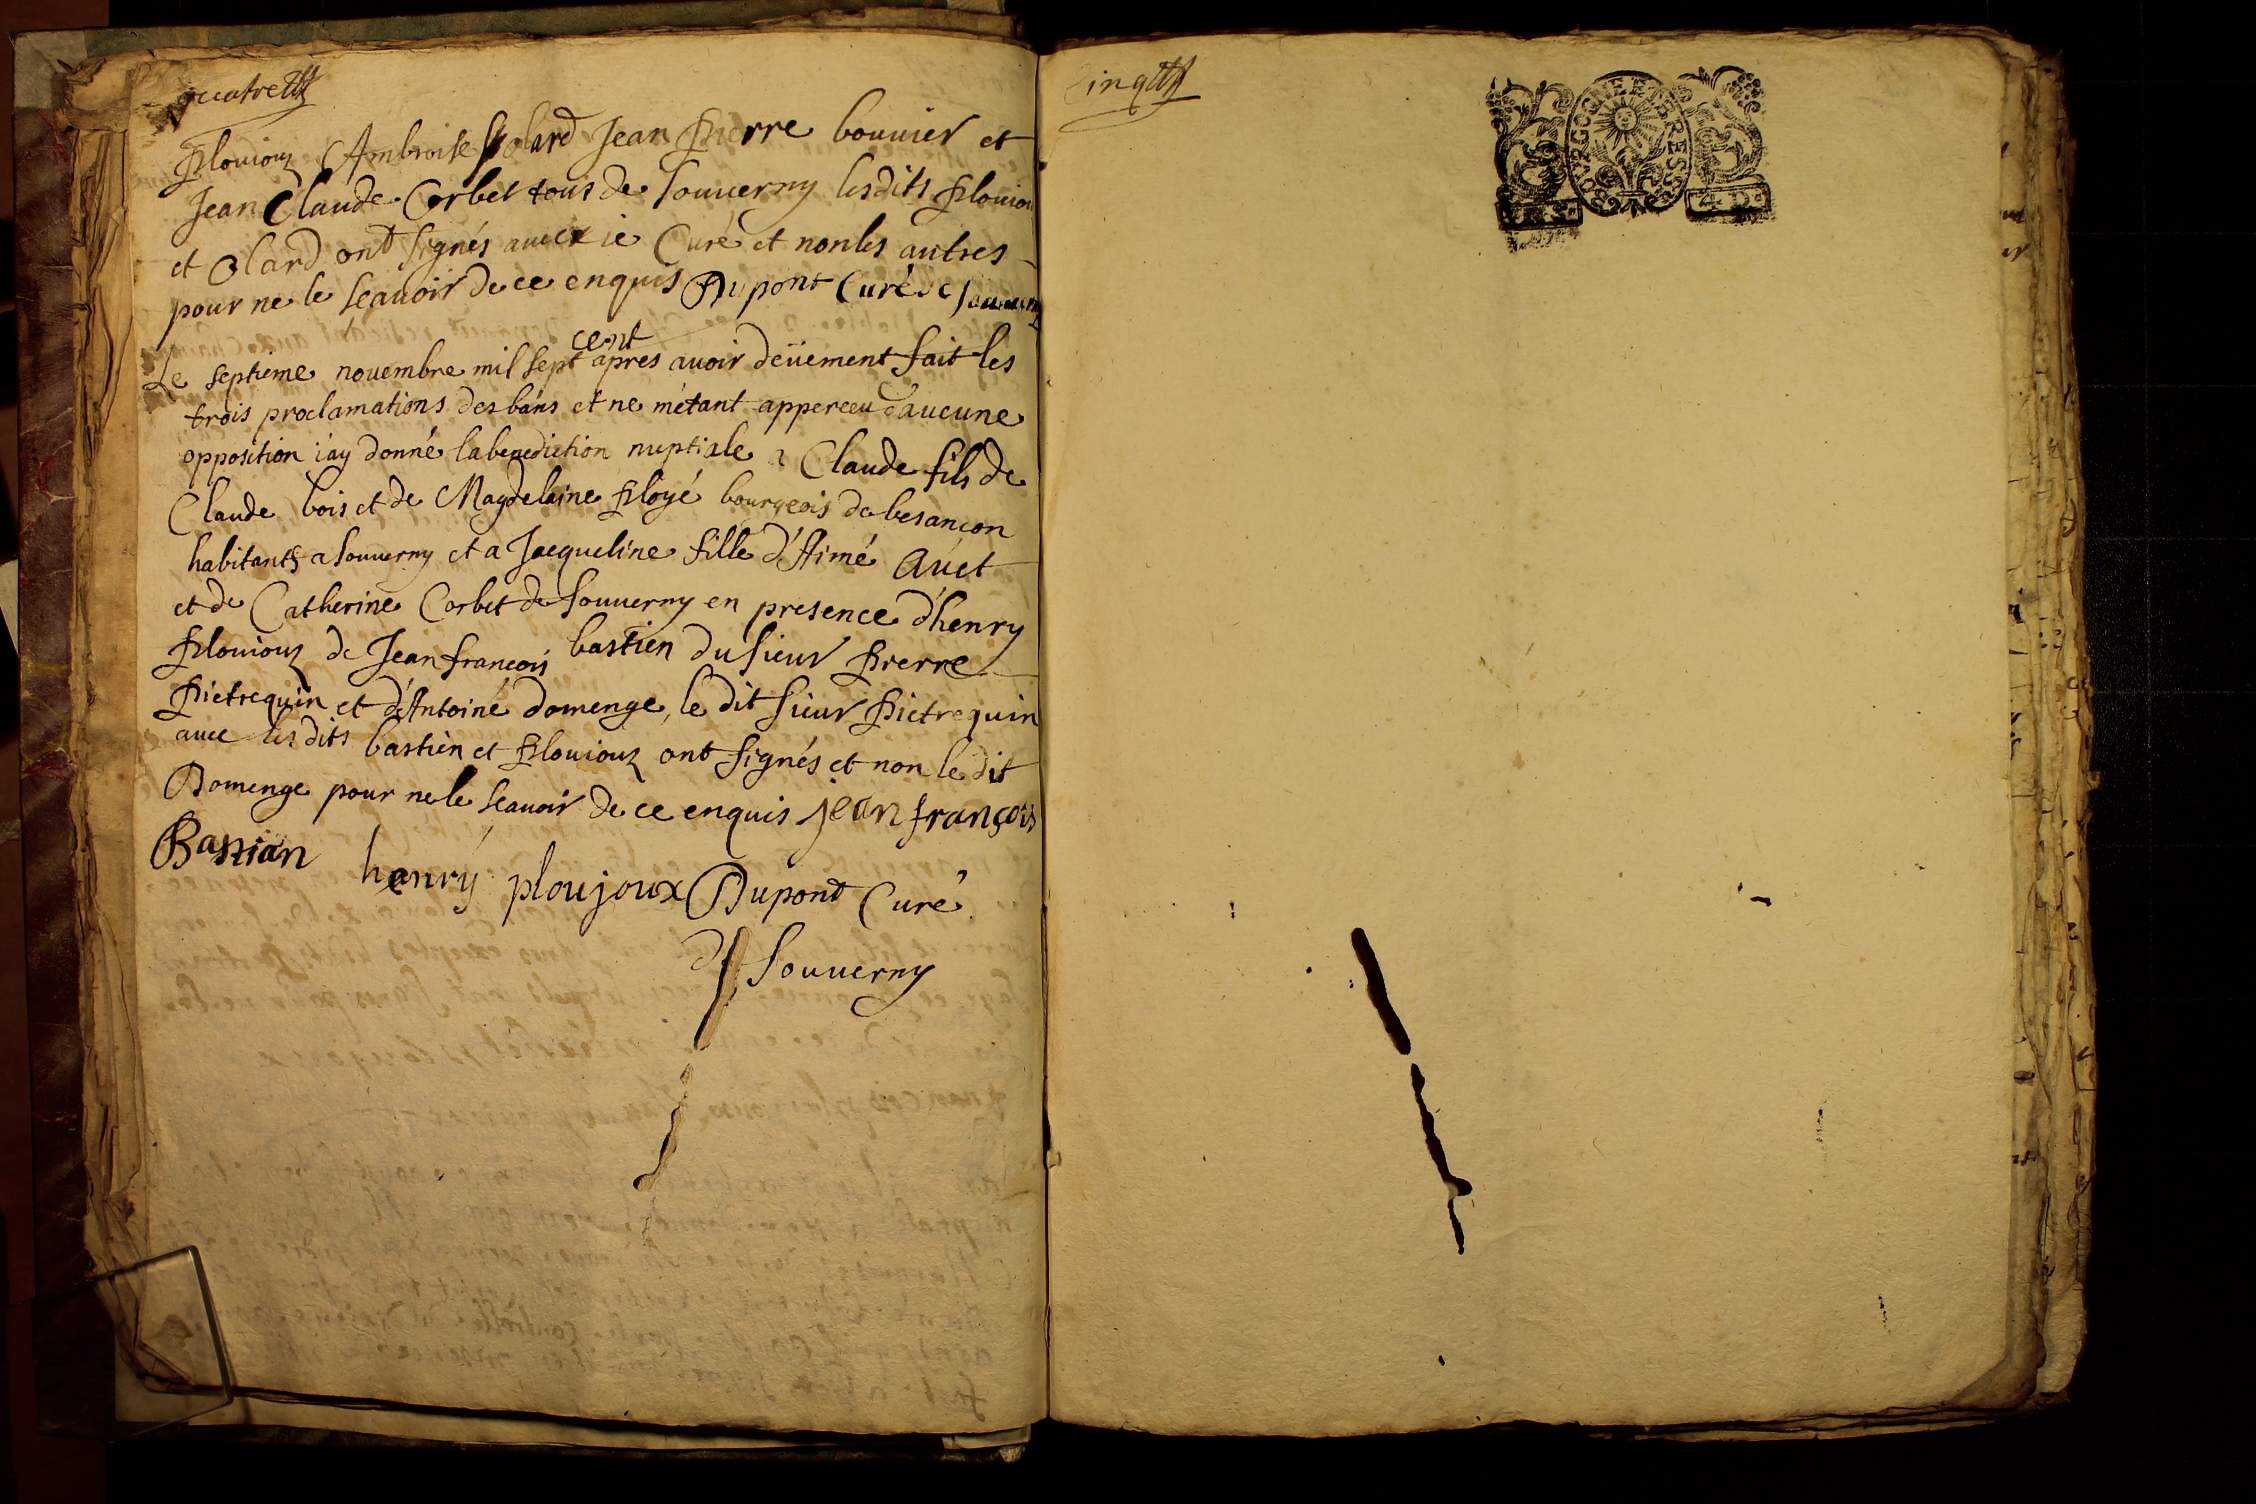 quatre
Ploujoux Ambroise Olard Jean Pierre bouvier et
Jean Claude Corbet tous de Souverny lesdits Ploujou
et Olard ont signés avec ie Curé et non les autres
pour ne le scavoir de ce enquis Dupont Curé de Souverny
cent
Le septieme novembre mil sept apres avoir deüement fait les
trois proclamations des bans et ne m'etant apperceu d'aucune
opposition i'ay donné la benediction nuptiale a Claude fils de
Claude bois et de Magdelaine Ployé bourgeois de besançon
habitants a Souverny et a Jacqueline fille d'Aimé Avet
et de Catherine Corbet de Souverny en presence d'henry
Ploujoux de Jean françois bastien du sieur Pierre
Pietrequin et d'Antoine domenge, le dit sieur Pietrequin
avec lesdits bastien et Ploujoux ont signés et non le dit
Domenge pour ne le scavoir de ce enquis jean françois
Bastian henry ploujoux Dupont Curé
de Souverny
Cinq
BOURGOGNE ET BRESSE